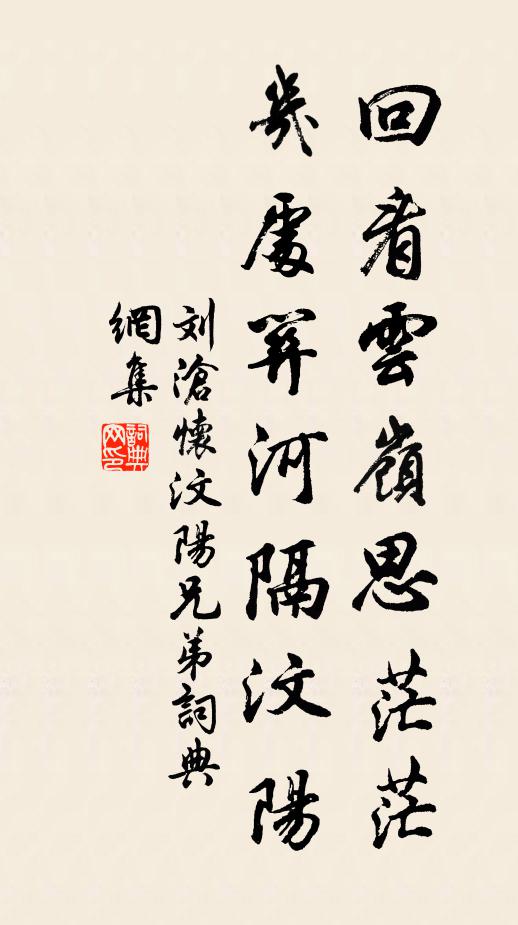 回看雲嶺思茫茫
幾處關河隔汶陽
刘滄懷汶陽兄弟詞典
網集
詞典
网印